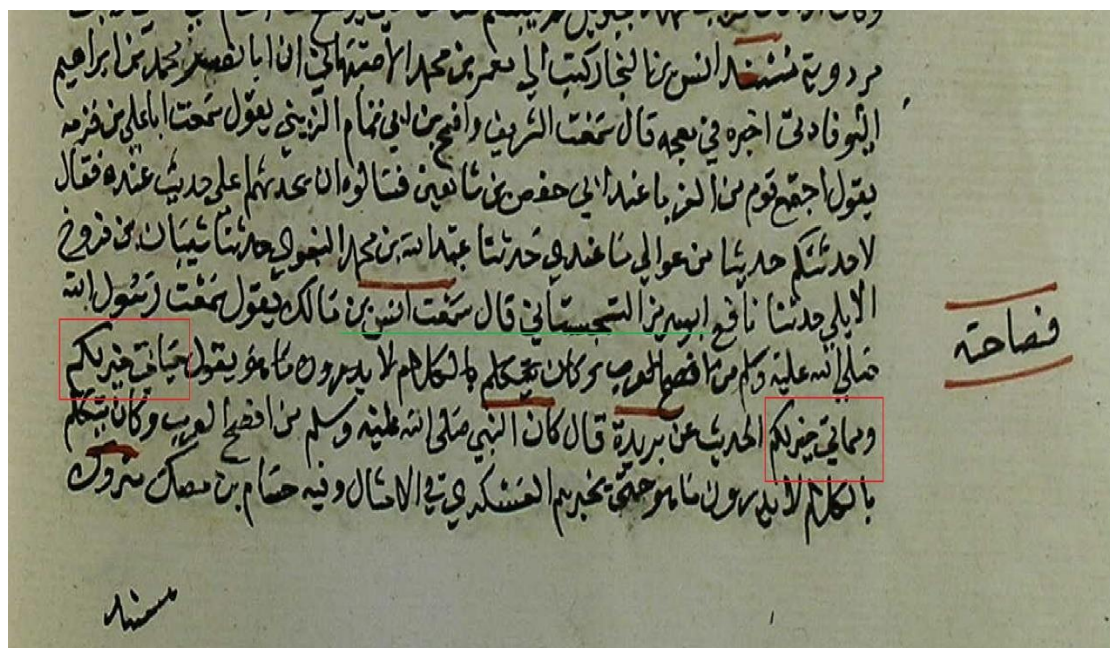 مردويه مسند انس بن النجار كتب الي معمر بن محمد الاصبهاني ان ابا نصر محمد بن ابراهيم
اليوفارتي اخبره في معجمه قال سمعت الشريف واضح بن ابي تمام الزينبي يقول سمعت ابا علي بن
يقول اجتمع قوم من الغربا عند ابي حفص بن شاهين فسالوه ان يحدثهم اعلى حديث عنده فقال
لاحدثنكم حديثا من عوالي ما عندي حدثنا عبد الله بن محمد البغوي حدثنا شيبان بن فروخ
الابلي حدثنا نافع ابو هرمز السجستاني قال سمعت انس بن مالك يقول سمعت رسول الله
صلى الله عليه وسلم من افصح العرب وكان يتكلم بالكلام لا يدرون ما هو يقول حياتي خير لكم
ومماتي خير لكم الحديث عن بريدة قال كان النبي صلى الله عليه وسلم من افصح العرب وكان يتكلم
بالكلام لا يدرون ما هو حتى يخبرهم العسكري في الامثال وفيه حسام بن مصك متروك
فصاحة
مسند